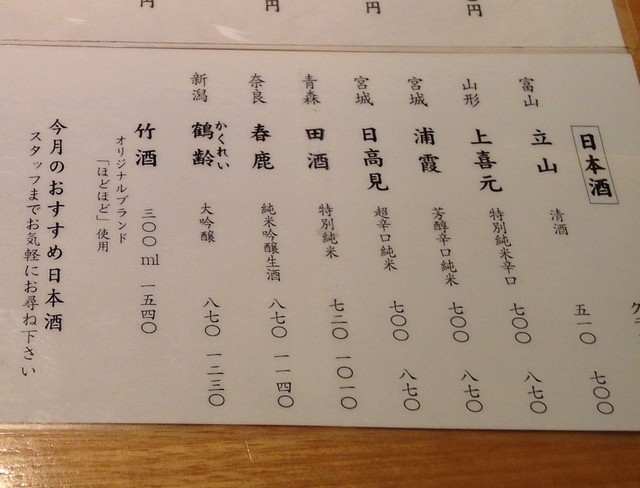 円
円
円
グラ
日本酒
富山 立山 清酒 五一〇 七〇〇
山形 上喜元 特別純米辛口 七〇〇 八七〇
宮城 浦霞 芳醇辛口純米 七〇〇 八七〇
宮城 日高見 超辛口純米 七〇〇 八七〇
青森 田酒 特別純米 七二〇 一〇一〇
奈良 春鹿 純米吟醸生酒 八七〇 一一四〇
かくれい
新潟 鶴齢 大吟醸 八七〇 一二三〇
竹酒 三〇〇ml 一五四〇
オリジナルブランド
「ほどほど」使用
今月のおすすめ日本酒
スタッフまでお気軽にお尋ね下さい